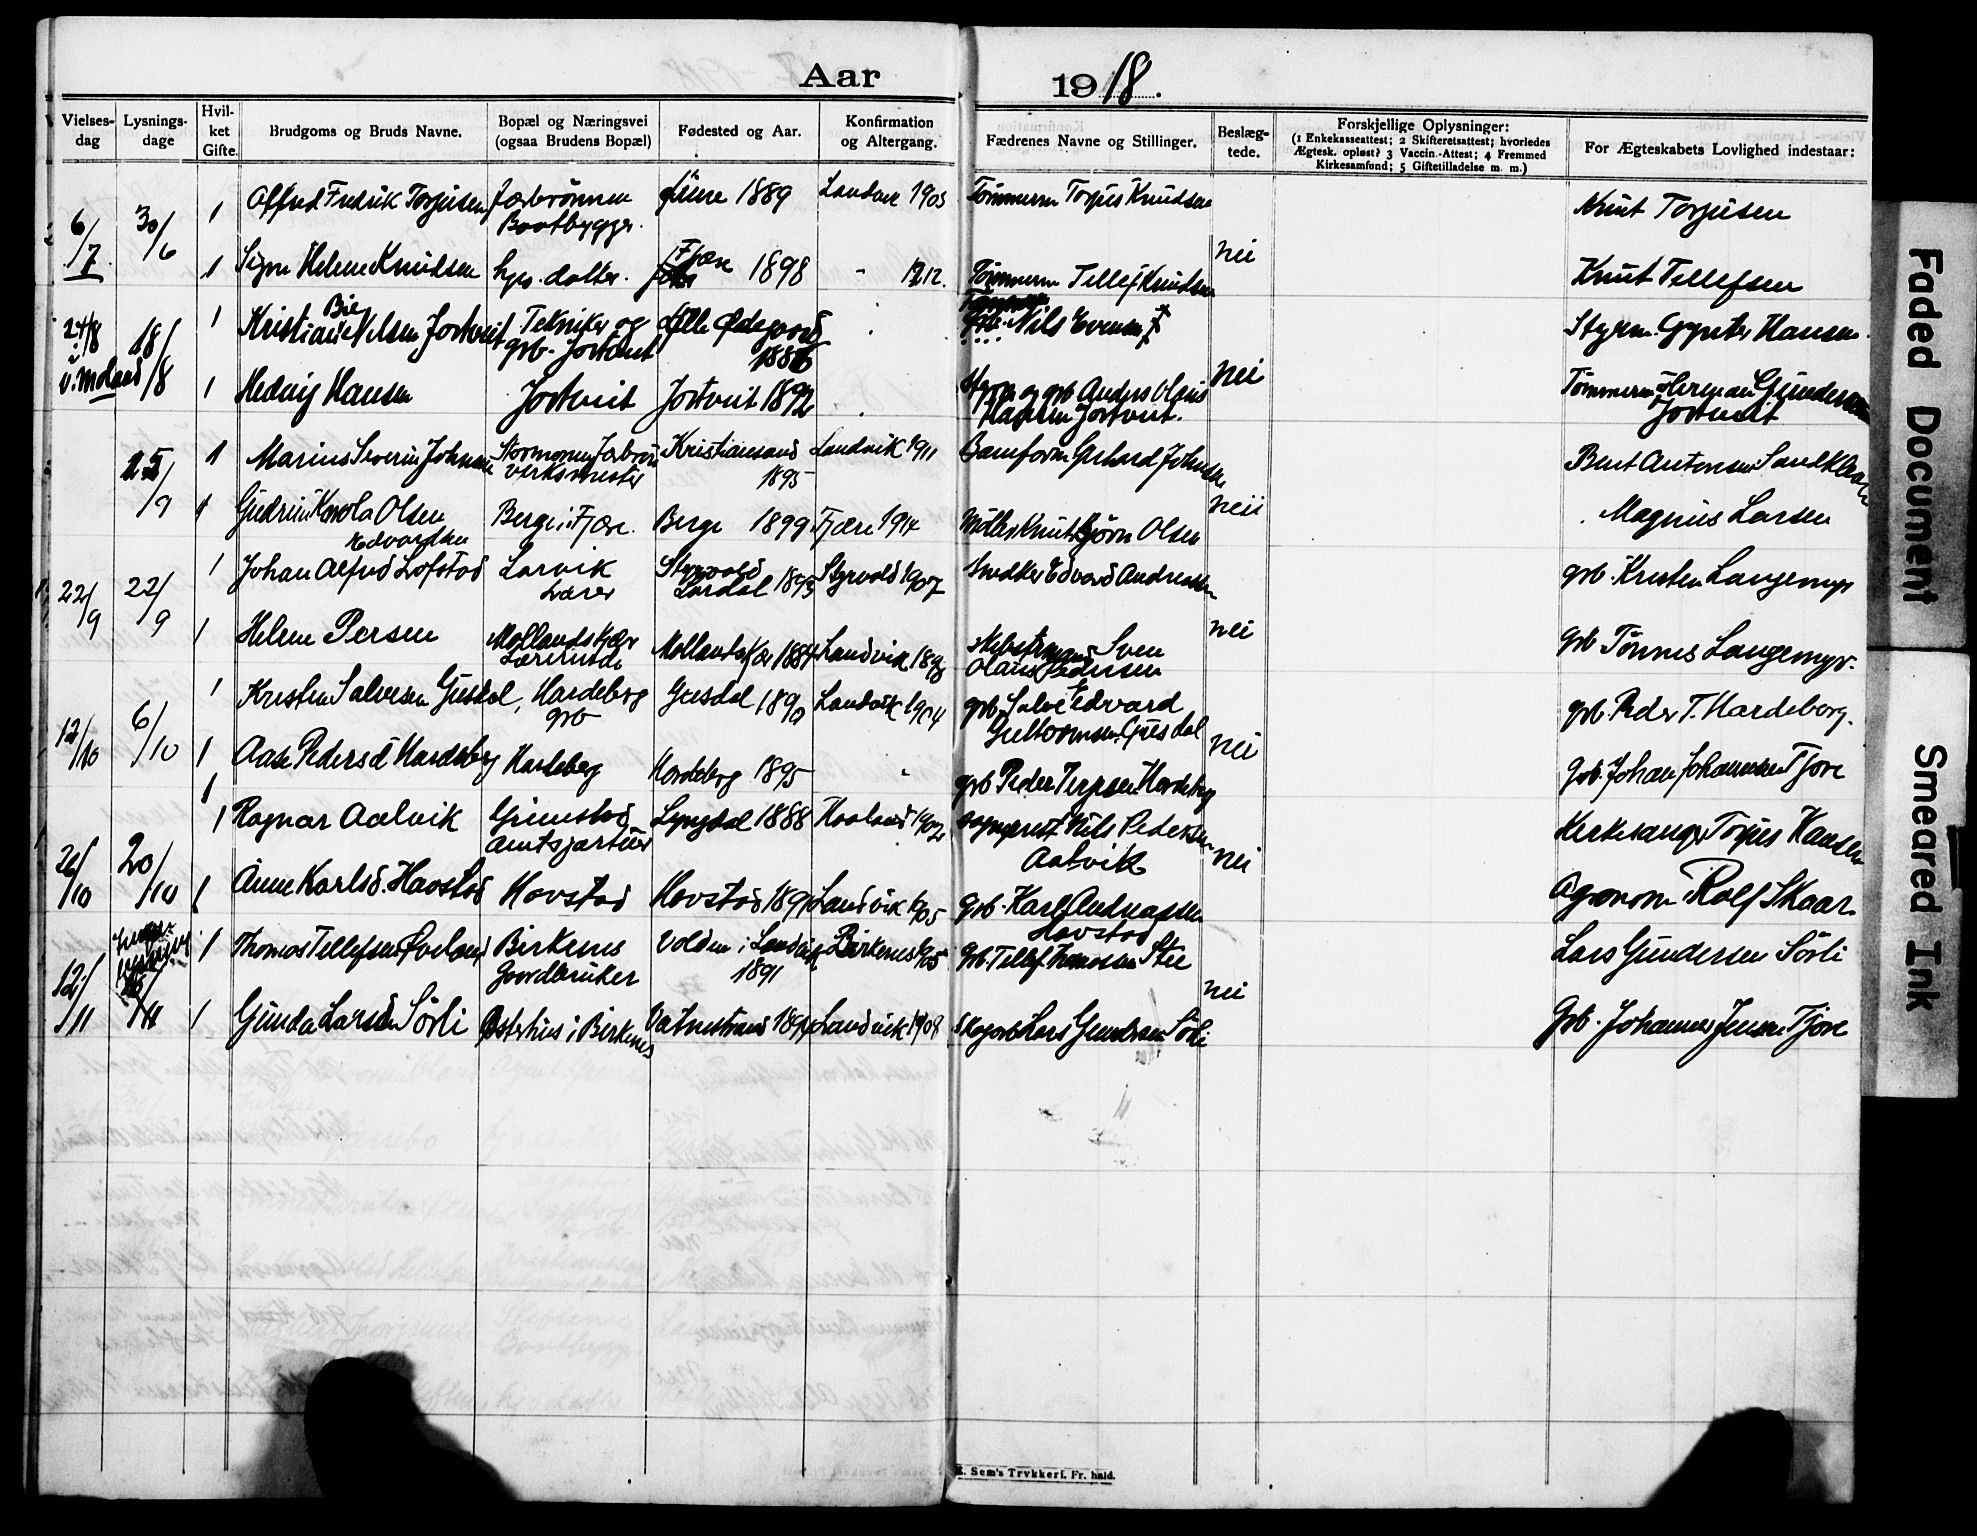 Aar 1918.
Vielses-dag
Lysnings-dage
Hvil-ket Gifte.
Brudgoms og Bruds Navne.
Bopæl og Næringsvei (ogsaa Brudens Bopæl)
Fødested og Aar.
Konfirmation og Altergang.
Fædrenes Navne og Stillinger.
Beslæg-tede.
Forskjellige Oplysninger:
(1 Enkekasseattest; 2 Skifteretsattest; hvorledes
Ægtesk. opløst? 3 Vaccin.-Attest; 4 Fremmed
Kirkesamfund; 5 Giftetilladelse m. m.)
For Ægteskabets Lovlighed indestaar:
6/7 30/6 1 Alfred Fredrik Torjusen 1889 Landvik 1905 Tømmerm Torjus Knudsen Knut Torjusen
Baatbygger.
nei
1 Signe Helene Knudsen hjv. datter. Fjære 1898 - 1912. Tømmerm Tellef Knudsen Knut Tellefsen
Bie
24/8 18/8 1 Nilsen Jortveit Tekniker og Lille Ødegaard Nils Evensen † Styrm. Hansen
grb. Jortveit 1886
v. Moland nei
1 Hedvig Hansen Jortveit Jortveit 1892 Styrm og grb Anders Olaus Tømmerm Herman Gundersen
Hansen Jortveit. Jortveit
15/9 1 Marius Severin Johnsen Kristiansand Landvik 1911 Gerhard Johnsen Bent Antonsen
verksmester 1895
neii
1 Gudrun Olsen Berge i Fjære. Berge 1899 Fjære 1914 Møller Knut Bjørn Olsen Magnus Larsen
Edvardsen
22/9 22/9 1 Johan Alfred Lofstad Larvik Styrvold 1893 Styrvold 1907 Snedker Edvard Andreassen grb. Kristen Langemyr
Lærer Lardal
nei
1 Helene Persen Mollandskjær Mollandskjær 1884 Landvik 1898 Sven grb Tønnes Langemyr.
Lærerinde Olaus Pedersen
12/10 6/10 1 Kristen Salvesen Guesdal, Hardeberg Guesdal 1890 Landvik 1904 grb. Salve Edvard grb. Peder T. Hardeberg.
grb Guttormsen Guesdal
nei
1 Aase Pedersd Hardeberg Hardeberg Hardeberg 1895 grb Peder Terjesen Hardeberg Grb. Johan Johannesen Tjore
1
26/10 20/10 1 Ragnar Aalvik Grimstad Lyngdal 1888 1902 sogneprest Nils Pedersen Kirkesanger Torjus Hansen
Amtsgartner Aalvik
nei
1 Anne Karlsd. Havstad Havstad Havstad 1890 Landvik 1905 grb. Karl Andreassen Agronom Rolf Skaar
Havstad
12/11 1 Thomas Tellefsen Øveland Birkenes Volden i Landvik Birkenes 1905 Grb. Tellef Lars Gundersen Sørli
Gaardbruker 1891
nei
1 Gunda Larsen Sørli Østerhus i Birkenes Vatnestrand Landvik 1908 Lars Gundersen Sørli Grb. Johannes Jensen Tjore
E. Sem's Trykkeri, Fr. hald.
Faded Document
Smeared Ink